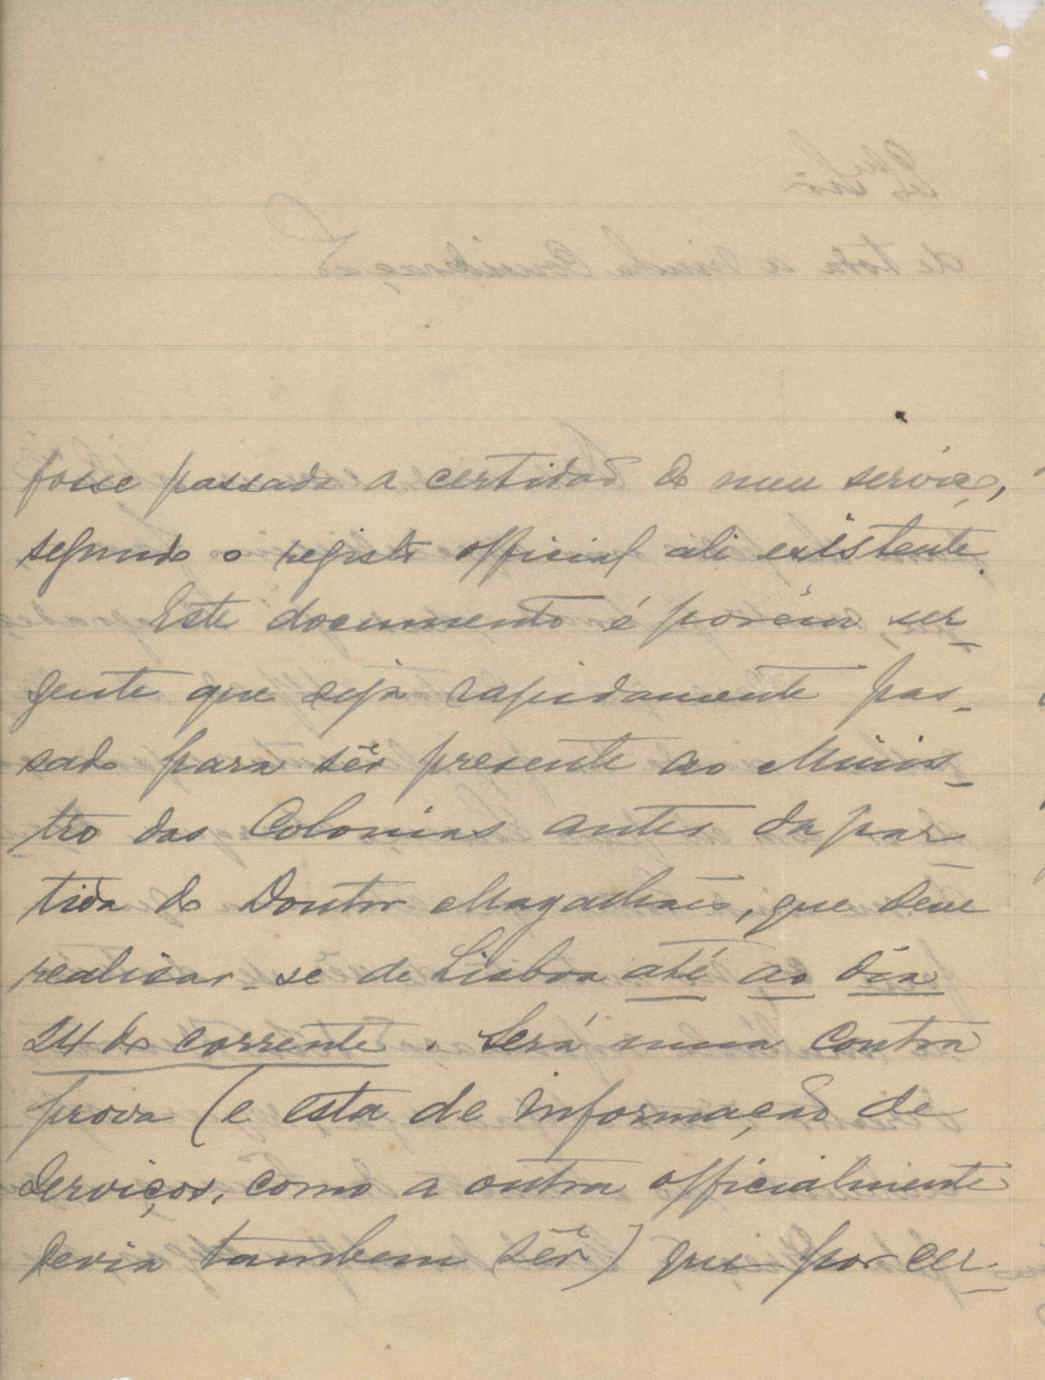 fosse passada a certidão do meu serviço,
segundo o registo official ali existente.
Este documento é porém ur-
gente que seja rapidamente pas-
sado para sêr presente ao Minis-
tro das Colonias antes da par
tida do Doutor Magalhães, que deve
realisar-se de Lisboa até ao dia
24 do corrente. Será uma contra
prova (e esta de informação de
Serviços, como a outra officialmente
devia tambem sêr) que por cer-